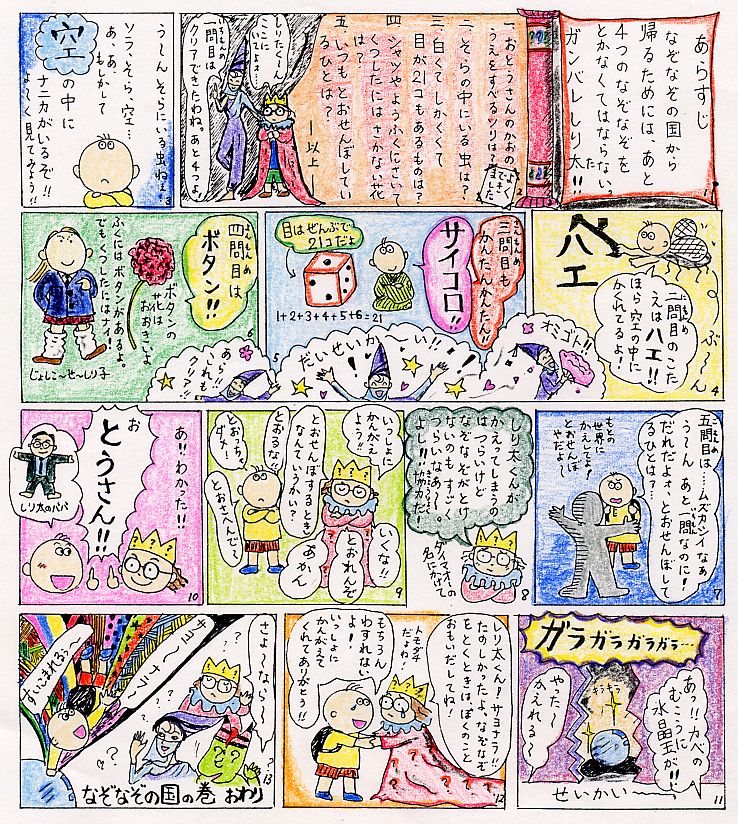 あらすじ
なぞなぞの国から
帰るためには、あと
4つのなぞなぞを
とかなくてはならない。
ガンバレしり太!!
1
一、おとうさんのかおの
うえをすべるソリは?
よくできました
二、そらの中にいる虫は?
三、白くてしかくくて
目が21コもあるものは?
四、シャツやようふくにさいて
くつしたにはさかない花
は?
五、いつもとおせんぼしてい
るひとは?
以上
しりたく〜ん
ここに
いてよォ
いちもんめ
一問目は
クリアできたわね。あと4つよ。
2
う〜ん そらにいる虫ねェ!
ソラ・そら・空…
あ、あ、
もしかして
空の中に
ナニカがいるぞ!!
よ〜く見てみよう!!
3
ぶ〜ん
ハエ
二問目のこた
えはハエ!!
ほら空の中に
かくれてるよ!
4
オミゴト
三問目も
かんたんかんたん!!
サイコロ!!
目はぜんぶで
21コだよ
1+2+3+4+5+6=21
だいせいか〜い!!
5
四問目は
ボタン!!
ボタンの
花は
おおきいよ
ふくにはボタンがあるよ。
でもくつしたにはナイ!
じょしこ〜せ〜しり子
あら!!
これも
クリア!!
6
五問目は…ムズカシイなぁ
う〜ん あと一問なのに!
だれだよォ、とおせんぼして
るひとは?…
もとの
世界に
かえしてよ!
とおせんぼ
やだよ〜
7
しり太くんが
かえってしまうの
はつらいけど
なぞなぞがとけ
ないのもすごく
つらいなあ〜。
よし!!協力だ
ナゾマオーの
名にかけて
8
いっしょに
かんがえ
よう!!
とおせんぼするとき
なんていうかい?
とおるな!!
とおっちゃ
だめ
とおさへんで。
いくな!!
とおれんぞ
あかん
9
あ!!わかった!!
お
とうさん!!
しり太のパパ
10
ガラガラガラガラ…
あっ!!カベの
むこうに
水晶玉が!!
キラキラ
やった〜
かえれる〜
せいかい〜
11
しり太くん!サヨナラ!!
たのしかったよ、なぞなぞ
をとくときは、ぼくのこと
おもいだしてね!
トモダチ
だよね!
もちろん
わすれない
よ!
いっしょに
かんがえて
くれてありがとう!!
12
さよ〜なら〜
サヨ〜ナラ〜
すいこまれるぅ
13
なぞなぞの国の巻 おわり